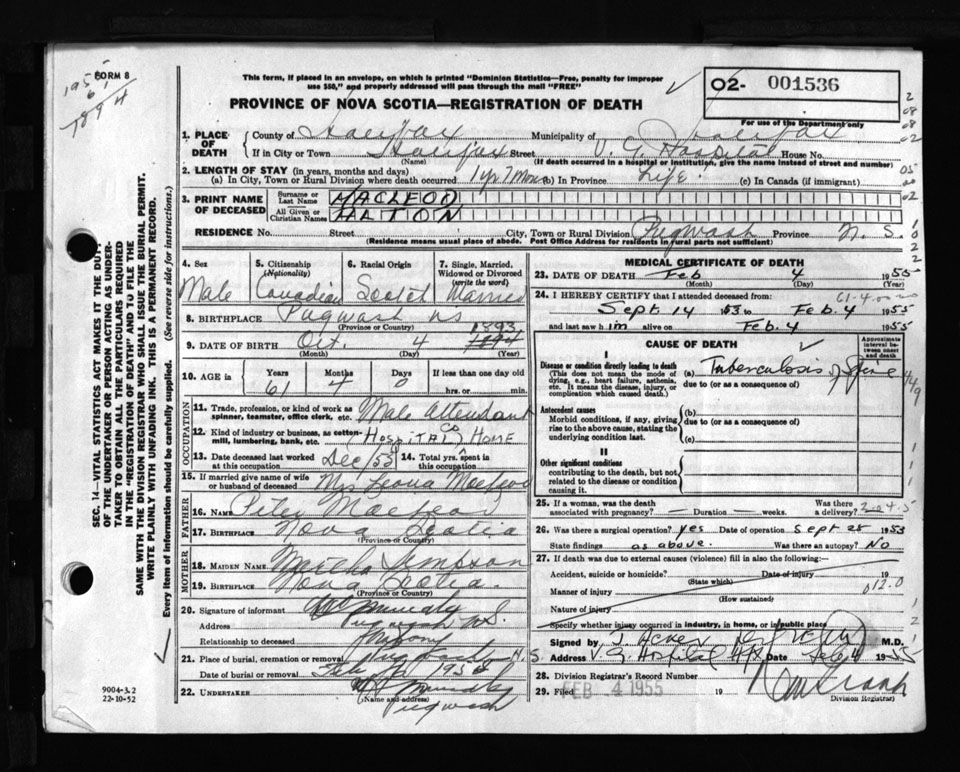 FORM 8
1955
61
1894
This form, if placed in an envelope, on which is printed "Dominion Statistics—Free, penalty for improper
use $50," and properly addressed will pass through the mail "FREE"
PROVINCE OF NOVA SCOTIA—REGISTRATION OF DEATH
O2- 001536
For use of the Department only
1. PLACE OF DEATH
County of Halifax Municipality of Halifax
If in City or Town Halifax Street V. G. Hospital House No.
(Name) (If death occurred in a hospital or institution, give the name instead of street and number)
2. LENGTH OF STAY (in years, months and days)
(a) In City, Town or Rural Division where death occurred 1 yr 7 Mons (b) In Province Life (c) In Canada (if immigrant)
3. PRINT NAME OF DECEASED
Surname or Last Name MACLEOD
All Given or Christian Names ALTON
RESIDENCE No. Street City, Town or Rural Division Pugwash Province N. S.
(Residence means usual place of abode. Post Office Address for residents in rural parts not sufficient)
4. Sex Male
5. Citizenship (Nationality) Canadian
6. Racial Origin Scotch
7. Single, Married, Widowed or Divorced (write the word) Married
8. BIRTHPLACE Pugwash NS
(Province or Country)
9. DATE OF BIRTH Oct. 4 1893 1894
(Month) (Day) (Year)
10. AGE in Years Months Days If less than one day
61 4 0 hrs. or min.
OCCUPATION
11. Trade, profession, or kind of work as spinner, teamster, office clerk, etc. Male Attendant
12. Kind of industry or business, as cotton-mill, lumbering, bank, etc. (HOSPITAL) CO HOME
13. Date deceased last worked at this occupation Dec/53 14. Total yrs. spent in this occupation
15. If married give name of wife or husband of deceased Mrs Leona MacLeod
FATHER
16. NAME Peter MacLeod
17. BIRTHPLACE Nova Scotia
(Province or Country)
MOTHER
18. MAIDEN NAME Simpson
19. BIRTHPLACE Nova Scotia
(Province or Country)
20. Signature of informant
Address Pugwash N.S.
Relationship to deceased
21. Place of burial, cremation or removal
Date of burial or removal
22. UNDERTAKER
(Name and address)
Pugwash
9004-3.2
22-10-52
SEC. 14—VITAL STATISTICS ACT MAKES IT THE DUTY
OF THE UNDERTAKER OR PERSON ACTING AS UNDER-
TAKER TO OBTAIN ALL THE PARTICULARS REQUIRED
IN THE "REGISTRATION OF DEATH" AND TO FILE THE
SAME WITH THE DIVISION REGISTRAR WHO SHALL ISSUE THE BURIAL PERMIT.
WRITE PLAINLY WITH UNFADING INK. THIS IS A PERMANENT RECORD.
Every item of information should be carefully supplied. (See reverse side for instructions.)
MEDICAL CERTIFICATE OF DEATH
23. DATE OF DEATH Feb 4 1955
(Month) (Day) (Year)
24. I HEREBY CERTIFY that I attended deceased from:
Sept 14 53 to Feb. 4 1955
and last saw him alive on Feb. 4 1955
CAUSE OF DEATH
Approximate interval between onset and death
I
Disease or condition directly leading to death
(This does not mean the mode of dying, e.g., heart failure, asthenia, etc. It means the disease, injury, or complication which caused death.)
(a) Tuberculosis of Spine
due to (or as a consequence of)
Antecedent causes
Morbid conditions, if any, giving rise to the above cause, stating the underlying condition last.
(b)
due to (or as a consequence of)
(c)
II
Other significant conditions
contributing to the death, but not related to the disease or condition causing it.
25. If a woman, was the death associated with pregnancy? — Duration — weeks. Was there a delivery?
26. Was there a surgical operation? yes Date of operation Sept 28 1953
State findings as above. Was there an autopsy? No
27. If death was due to external causes (violence) fill in also the following:—
Accident, suicide or homicide? Date of injury 19
(State which)
Manner of injury
(How sustained)
Nature of injury
Specify whether injury occurred in industry, in home, or in public place
Signed by J. Acker M.D.
Address V. G. Hospital Hfx Date Feb 4 1955
28. Division Registrar's Record Number
29. Filed FEB 4 1955 19
Division Registrar)